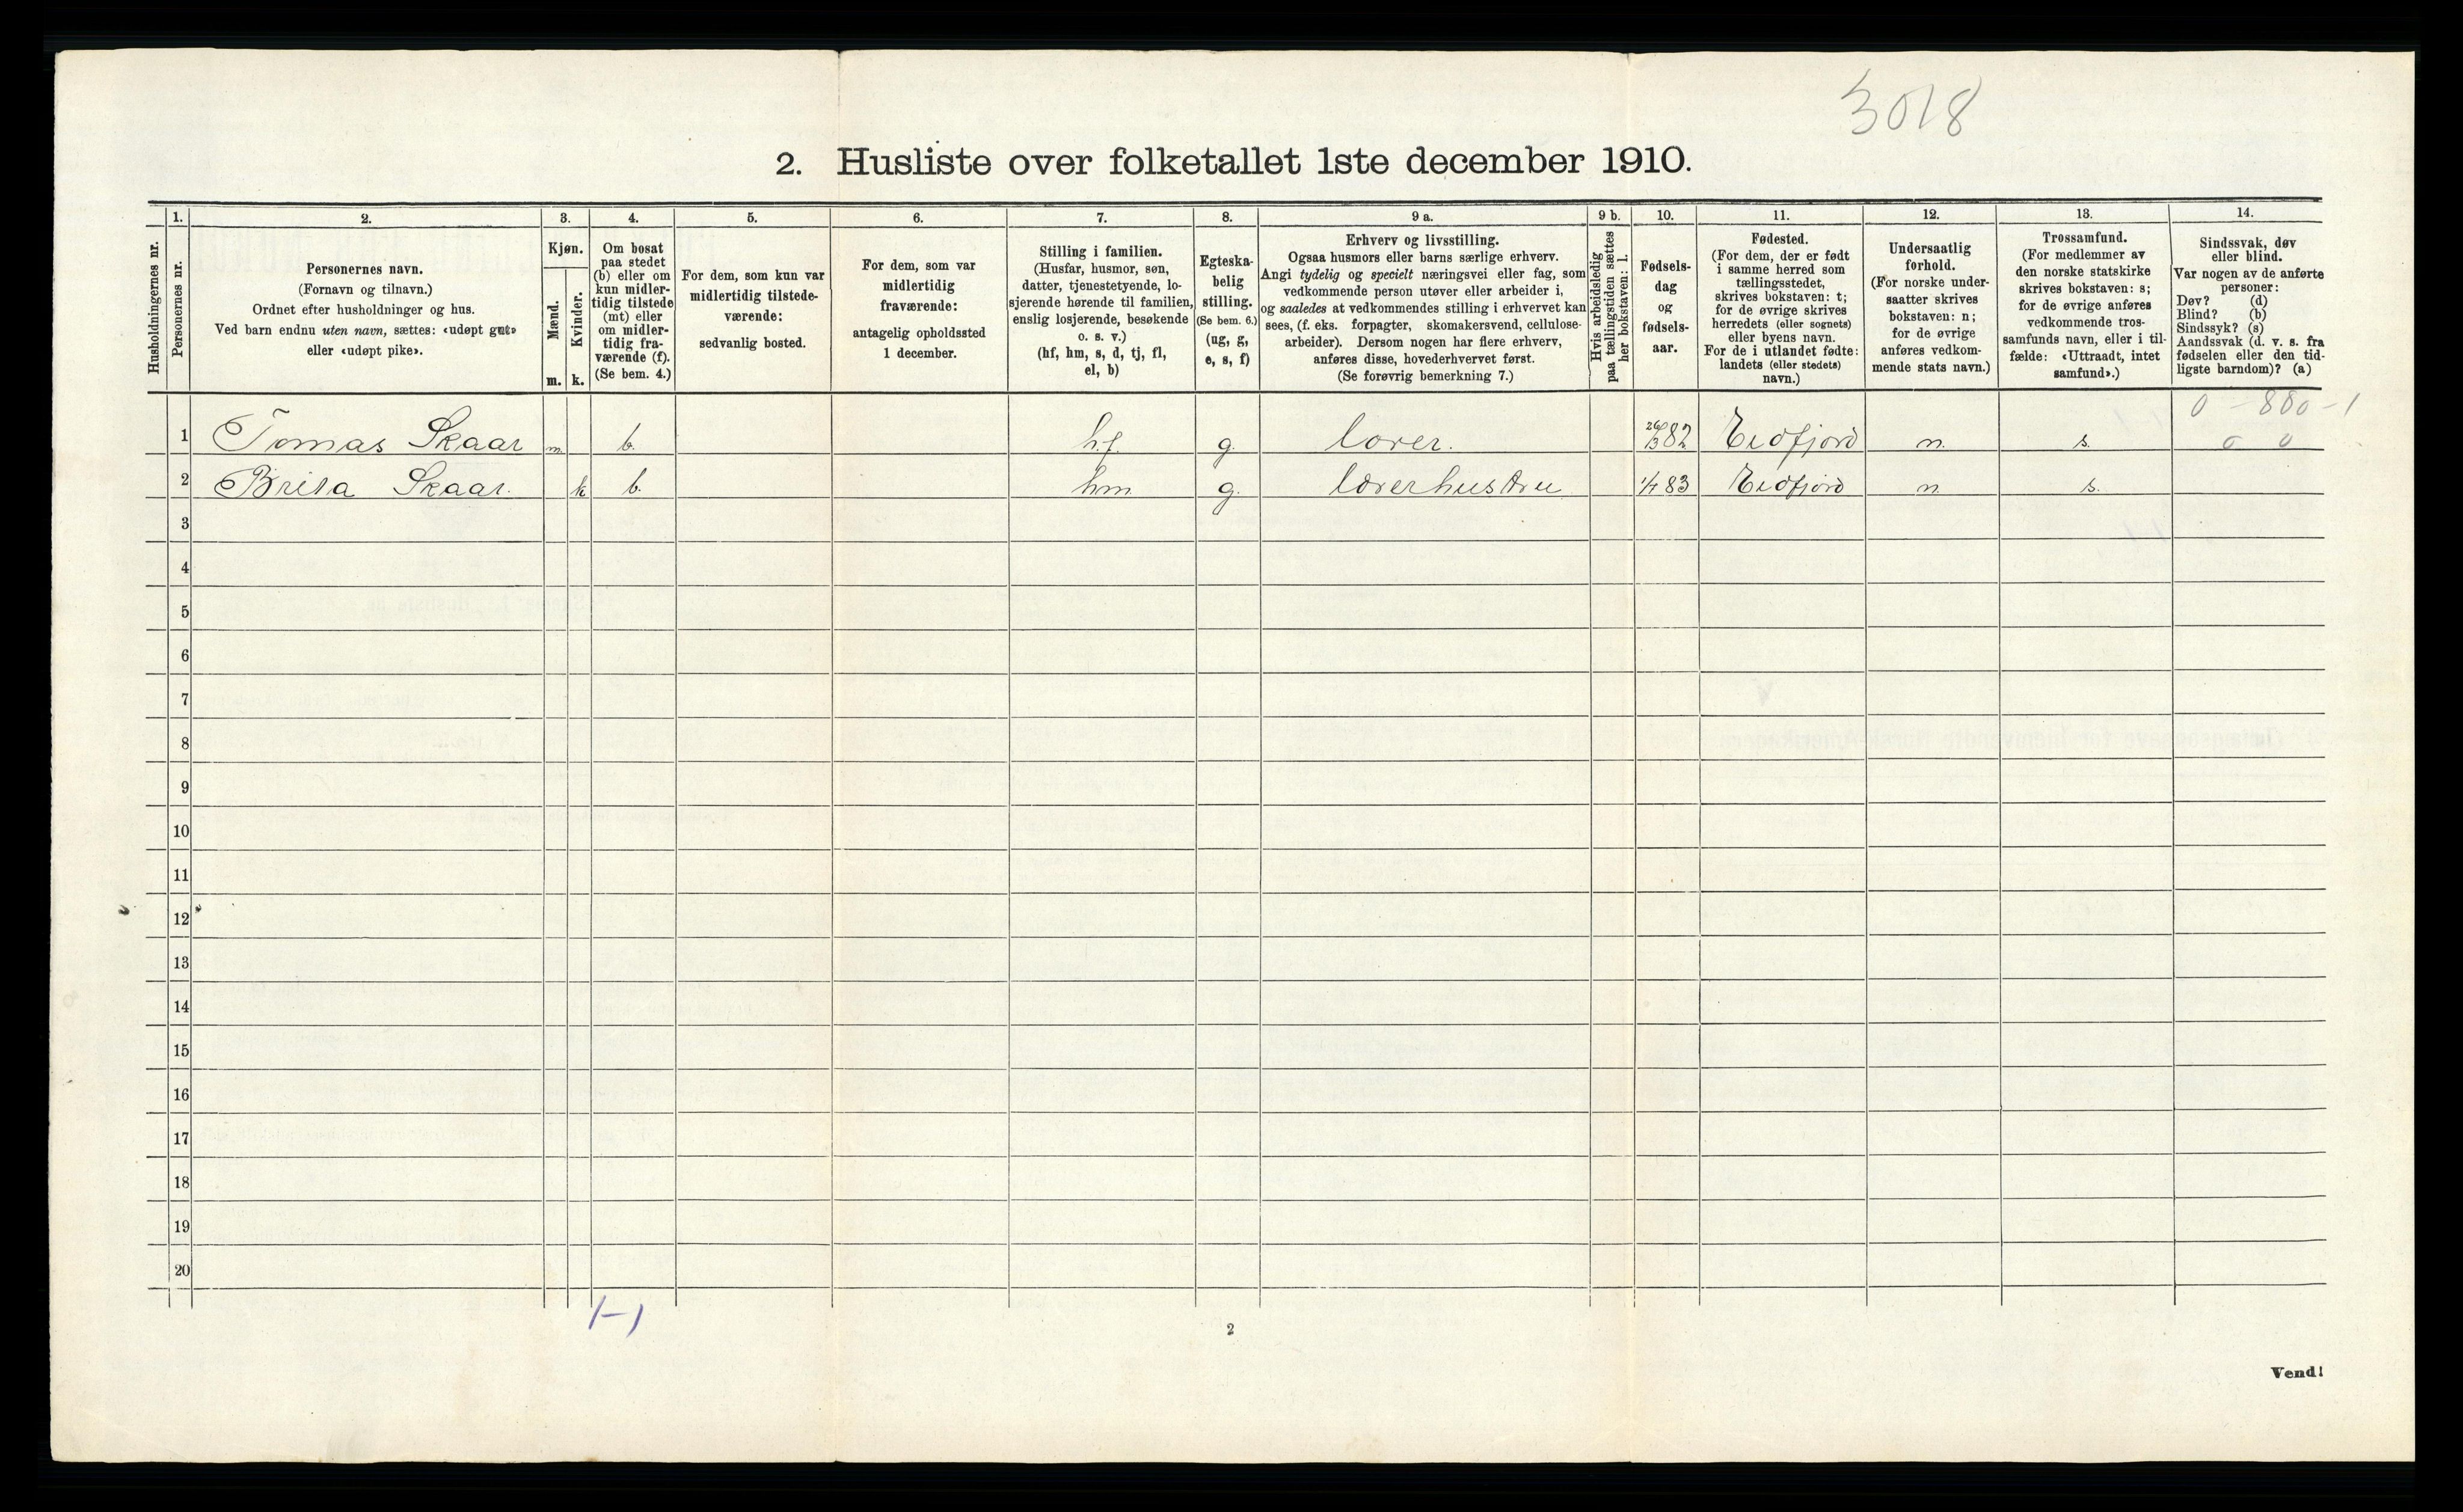 3018
2. Husliste over folketallet 1ste december 1910.
Husholdningernes nr.
1.
Personernes nr.
2.
Personernes navn.
(Fornavn og tilnavn.)
Ordnet efter husholdninger og hus.
Ved barn endnu uten navn, sættes: «udøpt gut»
eller «udøpt pike».
3.
Kjøn.
Mænd.
Kvinder.
m. k.
4.
Om bosat
paa stedet
(b) eller om
kun midler-
tidig tilstede
(mt) eller
om midler-
tidig fra-
værende (f).
(Se bem. 4.)
5.
For dem, som kun var
midlertidig tilstede-
værende:
sedvanlig bosted.
6.
For dem, som var
midlertidig
fraværende:
antagelig opholdssted
1 december.
7.
Stilling i familien.
(Husfar, husmor, søn,
datter, tjenestetyende, lo-
sjerende hørende til familien,
enslig losjerende, besøkende
o. s. v.)
(hf, hm, s, d, tj, fl,
el, b)
8.
Egteska-
belig
stilling.
(Se bem. 6.)
(ug, g,
e, s, f)
9 a.
Erhverv og livsstilling.
Ogsaa husmors eller barns særlige erhverv.
Angi tydelig og specielt næringsvei eller fag, som
vedkommende person utøver eller arbeider i,
og saaledes at vedkommendes stilling i erhvervet kan
sees, (f. eks. forpagter, skomakersvend, cellulose-
arbeider). Dersom nogen har flere erhverv,
anføres disse, hovederhvervet først.
(Se forøvrig bemerkning 7.)
9 b.
Hvis arbeidsledig
paa tællingstiden sættes
her bokstaven: l.
10.
Fødsels-
dag
og
fødsels-
aar.
11.
Fødested.
(For dem, der er født
i samme herred som
tællingsstedet,
skrives bokstaven: t;
for de øvrige skrives
herredets (eller sognets)
eller byens navn.
For de i utlandet fødte:
landets (eller stedets)
navn.)
12.
Undersaatlig
forhold.
(For norske under-
saatter skrives
bokstaven: n;
for de øvrige
anføres vedkom-
mende stats navn.)
13.
Trossamfund.
(For medlemmer av
den norske statskirke
skrives bokstaven: s;
for de øvrige anføres
vedkommende tros-
samfunds navn, eller i til-
fælde: «Uttraadt, intet
samfund».)
14.
Sindssvak, døv
eller blind.
Var nogen av de anførte
personer:
Døv? (d)
Blind? (b)
Sindssyk? (s)
Aandssvak (d. v. s. fra
fødselen eller den tid-
ligste barndom)? (a)
0 - 880 - 1
1 Tomas Skaar m. b. h.f. g. lærer. 82 Eidfjord n. s. 0 0
2 Brita Skaar. k b. hm. g. lærerhustru 1/7 83 Eidfjord n. s.
3
4
5
6
7
8
9
10
11
12
13
14
15
16
17
18
19
20
1-1
2
Vend!